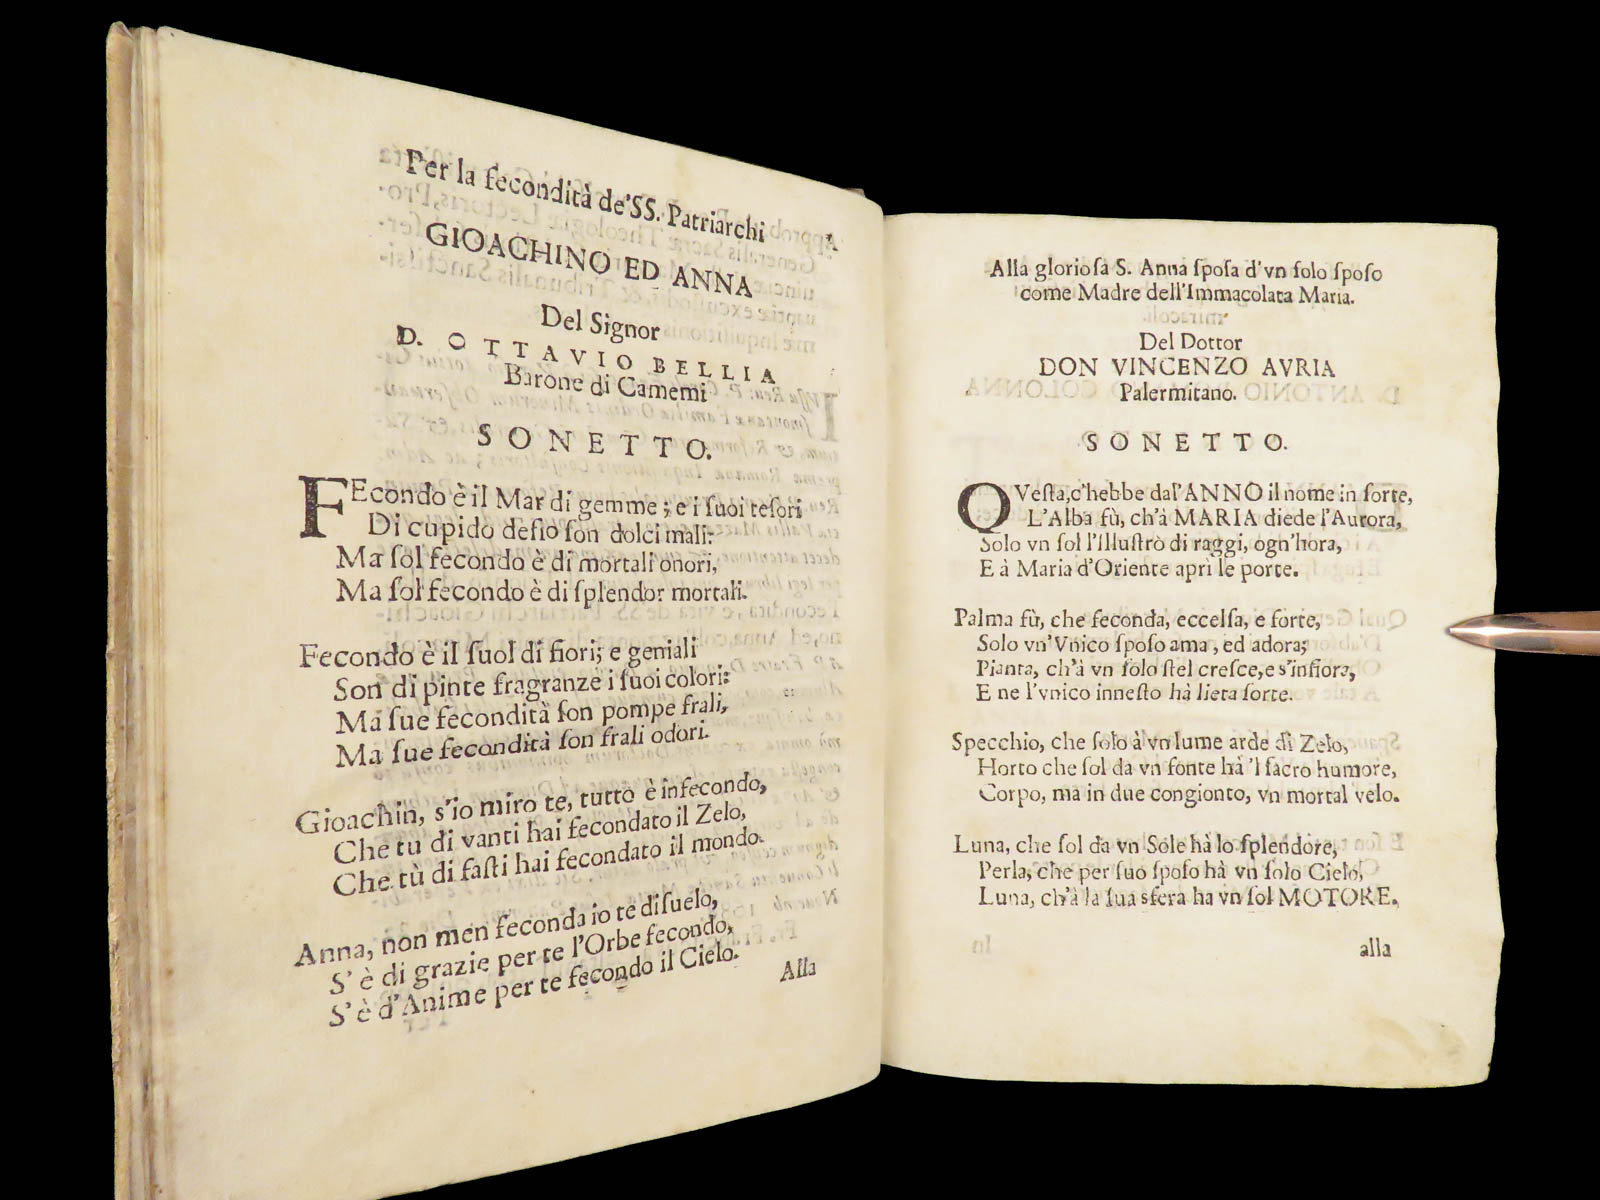 Per la fecondità de'SS. Patriarchi
GIOACHINO ED ANNA
Del Signor
D. OTTAVIO BELLIA
Barone di Camemi
SONETTO.
FEcondo è il Mar di gemme; e i ſuoi teſori
Di cupido deſio ſon dolci mali:
Ma ſol fecondo è di mortali onori,
Ma ſol fecondo è di ſplendor mortali.
Fecondo è il ſuol di fiori; e geniali
Son di pinte fragranze i ſuoi colori:
Ma ſue fecondità ſon pompe frali,
Ma ſue fecondità ſon frali odori.
Gioachin, s'io miro te, tutto è infecondo,
Che tù di vanti hai fecondato il Zelo,
Che tù di faſti hai fecondato il mondo.
Anna, non men feconda io te diſuelo,
S' è di grazie per te l'Orbe fecondo,
S' è d'Anime per te fecondo il Cielo.
Alla
Alla glorioſa S. Anna ſpoſa d'vn ſolo ſpoſo
come Madre dell'Immacolata Maria.
Del Dottor
DON VINCENZO AVRIA
Palermitano.
SONETTO.
QVeſta, c'hebbe dal'ANNO il nome in ſorte,
L'Alba fù, ch'à MARIA diede l'Aurora,
Solo vn ſol l'illuſtrò di raggi, ogn'hora,
E à Maria d'Oriente aprì le porte.
Palma fù, che feconda, eccelſa, e forte,
Solo vn'Vnico ſpoſo ama, ed adora;
Pianta, ch'à vn ſolo ſtel creſce, e s'infiora,
E ne l'vnico inneſto hà lieta ſorte.
Specchio, che ſolo à vn lume arde di Zelo,
Horto che ſol da vn fonte hà 'l ſacro humore,
Corpo, ma in due congionto, vn mortal velo.
Luna, che ſol da vn Sole hà lo ſplendore,
Perla, che per ſuo ſpoſo hà vn ſolo Cielo,
Luna, ch'à la ſua sfera ha vn ſol MOTORE.
alla